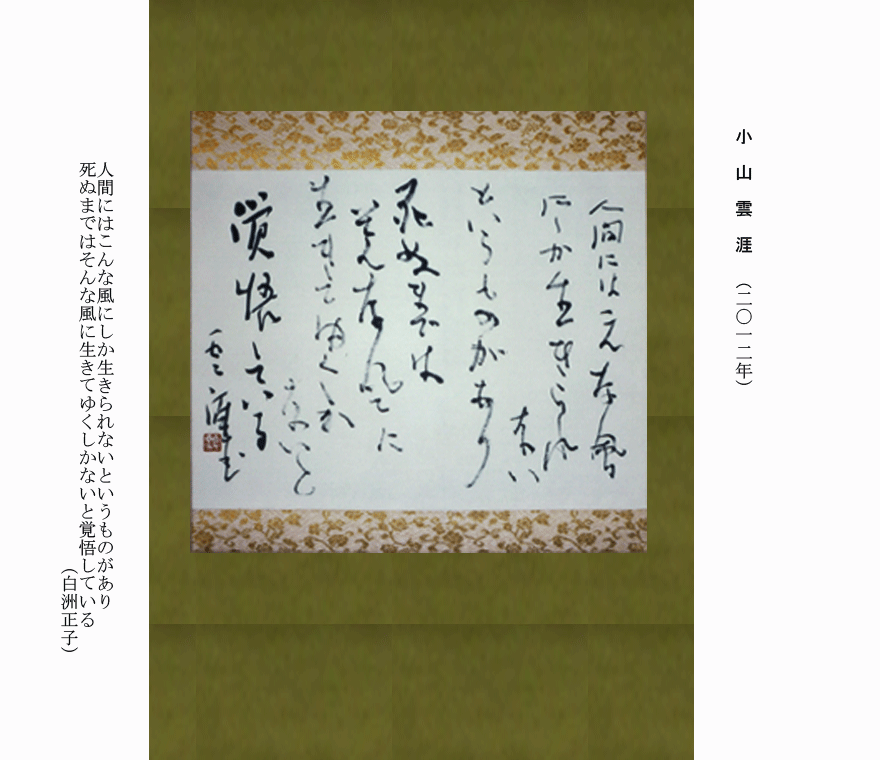 小山雲涯 （二〇一二年）
人間にはこんな風
にしか生きられ
ない
というものがあり
死ぬまでは
そんな風に
生きてゆくしか
ないと
覚悟している
雲涯書
人間にはこんな風にしか生きられないというものがあり
死ぬまではそんな風に生きてゆくしかないと覚悟している
（白洲正子）